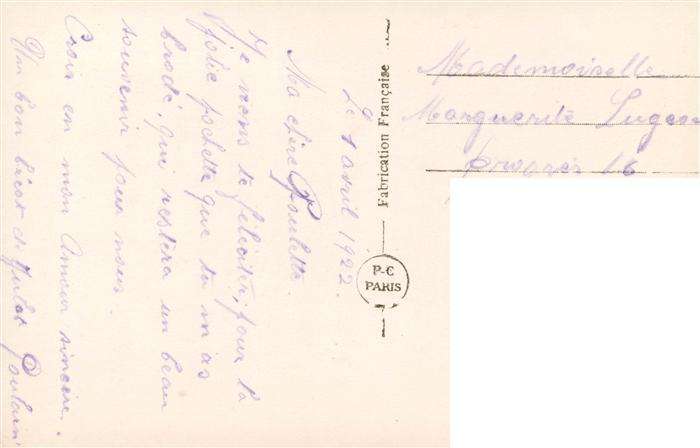 Le 1 avril 1922.
Ma chère Paulette.
Je viens te féliciter, pour la
Jolie pochette que tu m'as
brodé, qui restera un beau
souvenir pour nous.
Crois en mon Amour sincère.
Un bon baiser de Jules Poulain
Fabrication Française
P-C
PARIS
Mademoiselle
Marguerite
16